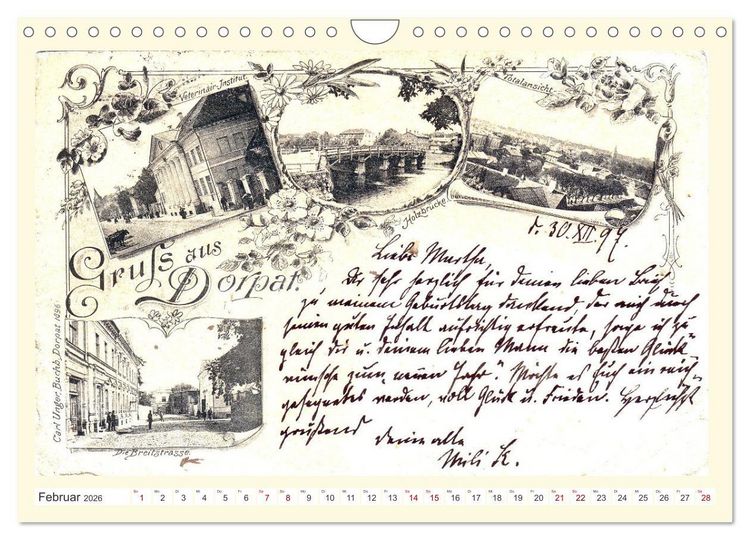 Veterinair-Institut.
Totalansicht.
Holzbrücke
Gruss aus
Dorpat.
d. 30.XII.97.
Liebe Martha,
Dir sehr herzlich für deinen lieben
zu meinem Geburtstag dankend, der mich durch
seinen guten Inhalt aufrichtig erfreute, sage ich zu
gleich dir u. deinem lieben Mann die besten Glück
wünsche zum "neuen Jahr". Möchte es Euch ein reich
gesegnetes werden, voll Glück u. Frieden. Herzlichst
grüßend
deine alte
Mili K.
Carl Unger, Buchh., Dorpat 1896
Die Breitstrasse.
Februar 2026
1 2 3 4 5 6 7 8 9 10 11 12 13 14 15 16 17 18 19 20 21 22 23 24 25 26 27 28